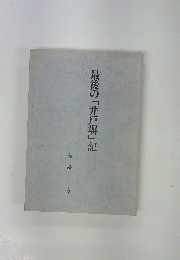 最後の「井戸塀」記